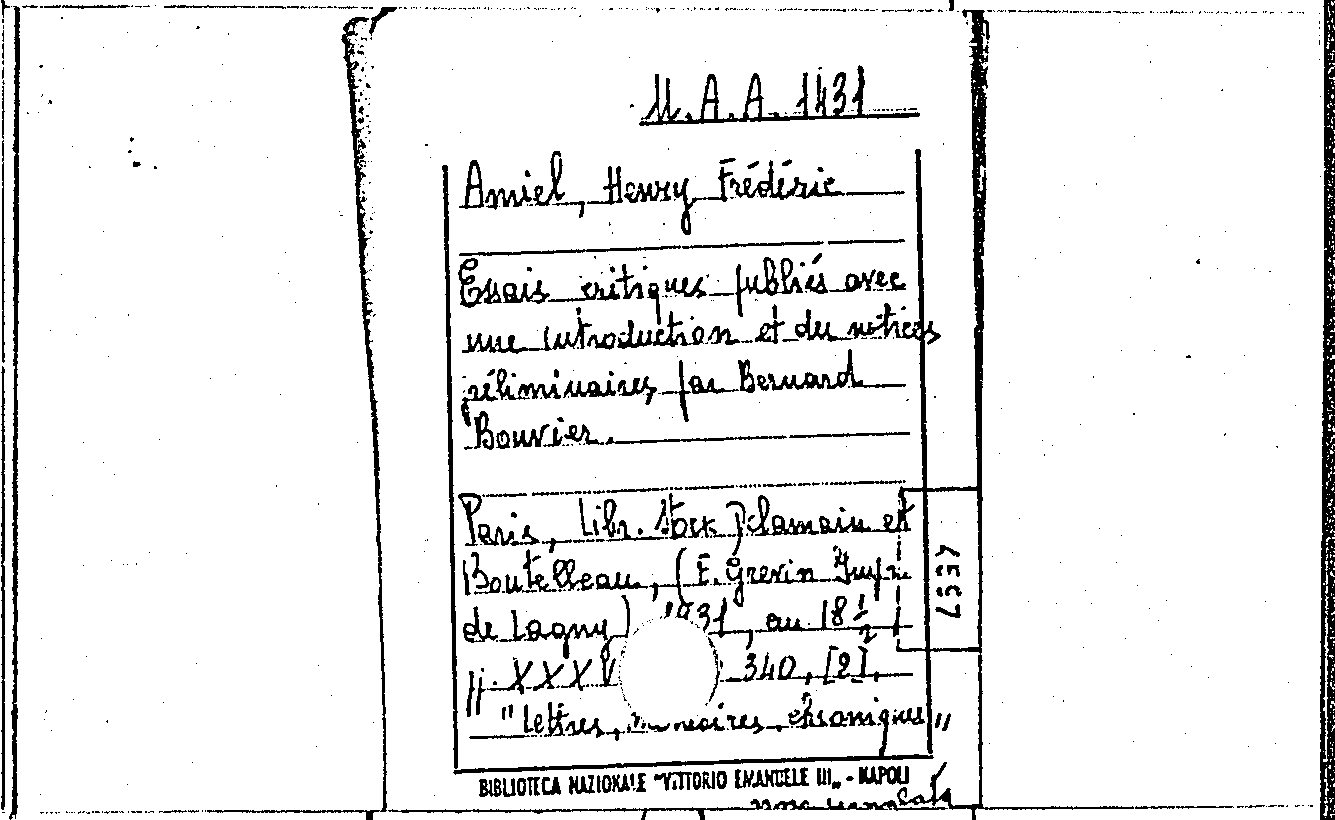 M.A.A. 1431
Amiel, Henry Frédéric
Essais critiques publiés avec
une introduction et du notices
préliminaires par Bernard
Bouvier.
Paris, Libr. Stock Delamain et
Boutelleau, (E. Grevin Impr.
de Lagny) 1931, cm 18 1/2
pp. XXXV 340, [2].
"Lettres, mémoires, chroniques"
BIBLIOTECA NAZIONALE "VITTORIO EMANUELE III" - NAPOLI